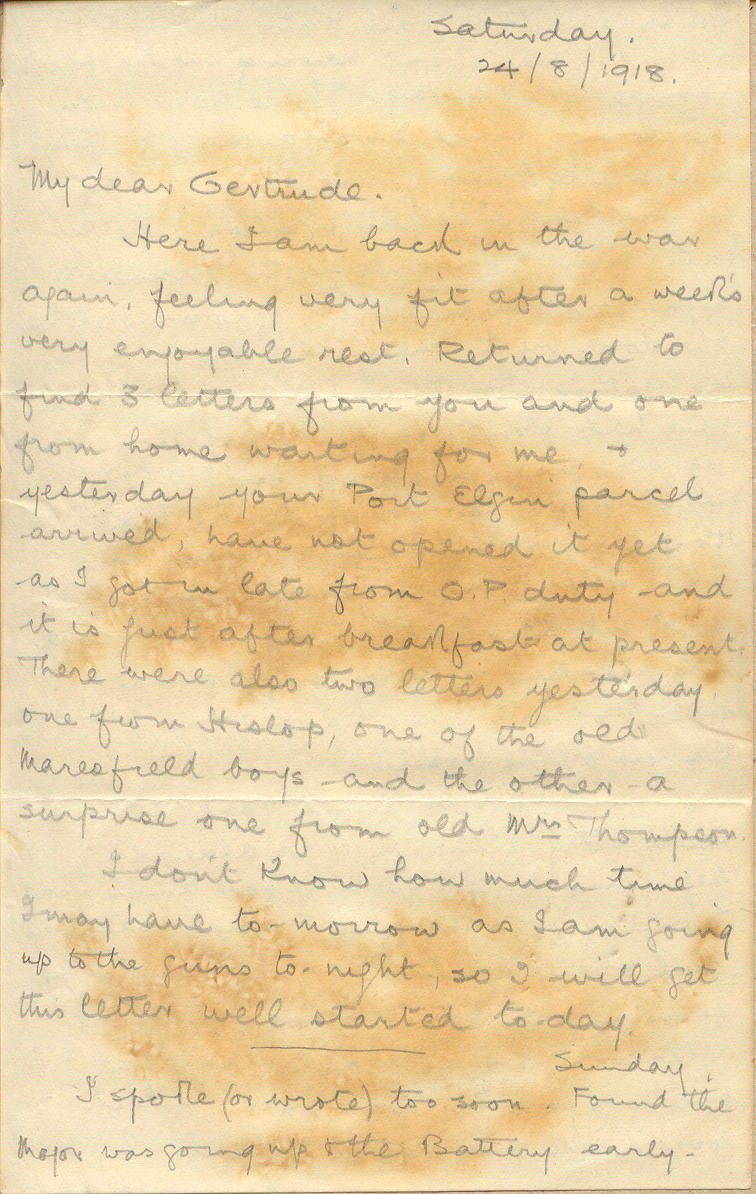 Saturday.
24/8/1918.
My dear Gertrude.
Here I am back in the war
again, feeling very fit after a week's
very enjoyable rest. Returned to
find 3 letters from you and one
from home waiting for me, +
yesterday your Port Elgin parcel
arrived, have not opened it yet
as I got in late from O.P. duty and
it is just after breakfast at present.
There were also two letters yesterday,
one from Hislop, one of the old
Maresfield boys and the other a
surprise one from old Mrs Thompson.
I don't know how much time
I may have to-morrow as I am going
up to the guns to-night, so I will get
this letter well started to-day.
Sunday.
I spoke (or wrote) too soon. Found the
Major was going up to the Battery early-